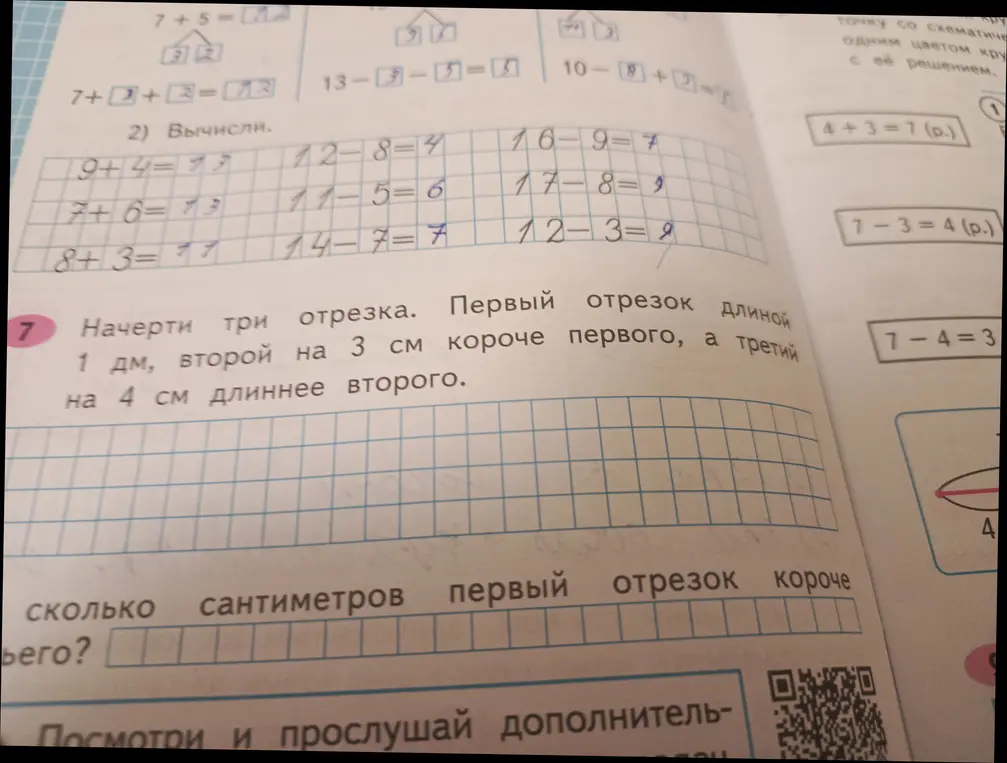 7 + 5 = 12
3 2
7+ 3 + 2 = 12
13 − 3 − 5 = 5
10 − 8 +
2) Вычисли.
9+ 4= 13 12− 8= 4 16− 9= 7
7+ 6= 13 11− 5= 6 17− 8= 9
8+ 3= 11 14− 7= 7 12− 3= 9
7 Начерти три отрезка. Первый отрезок длиной
1 дм, второй на 3 см короче первого, а третий
на 4 см длиннее второго.
сколько сантиметров первый отрезок короче
ьего?
Посмотри и прослушай дополнитель-
точку со схематиче
одним цветом кру
с её решением.
1
4 + 3 = 7 (р.)
7 − 3 = 4 (р.)
7 − 4 = 3
4